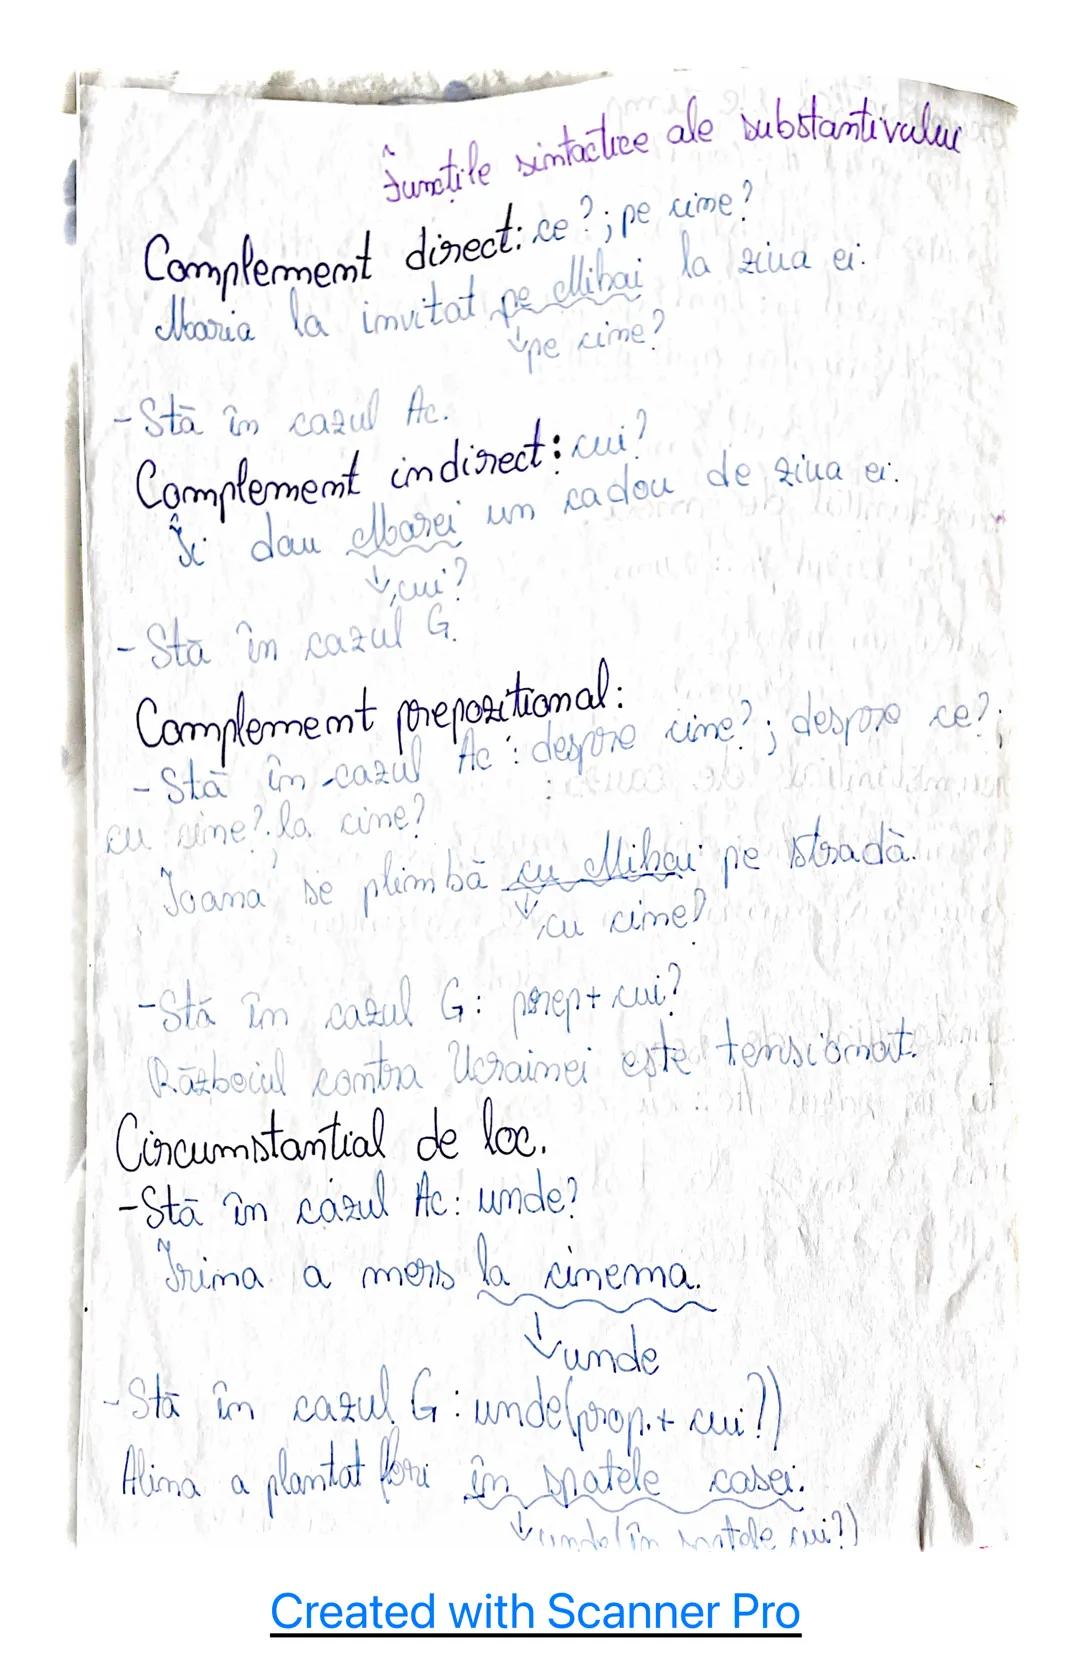 Funcțile sintactice ale substantivului
Complement direct: ce?; pe cine?
Maria la invitat pe Mihai la ziua ei.
↓pe cine?
-Stă în cazul Ac.
Complement indirect: cui?
Îi dau Mariei un cadou de ziua ei.
↓cui?
-Stă în cazul G.
Complement prepozitional:
-Stă în cazul Ac: despre cine?; despre ce?;
cu cine?, la cine?
Ioana se plimbă cu Mihai pe stradă.
↓cu cine?
-Stă în cazul G: prep+ cui?
Războiul contra Ucrainei este tensionat.
Circumstantial de loc.
-Stă în cazul Ac: unde?
Irina a mers la cinema.
↓unde
-Stă în cazul G: unde(prop.+ cui?)
Alina a plantat flori în spatele casei.
↓unde(în spatele cui?)
Created with Scanner Pro